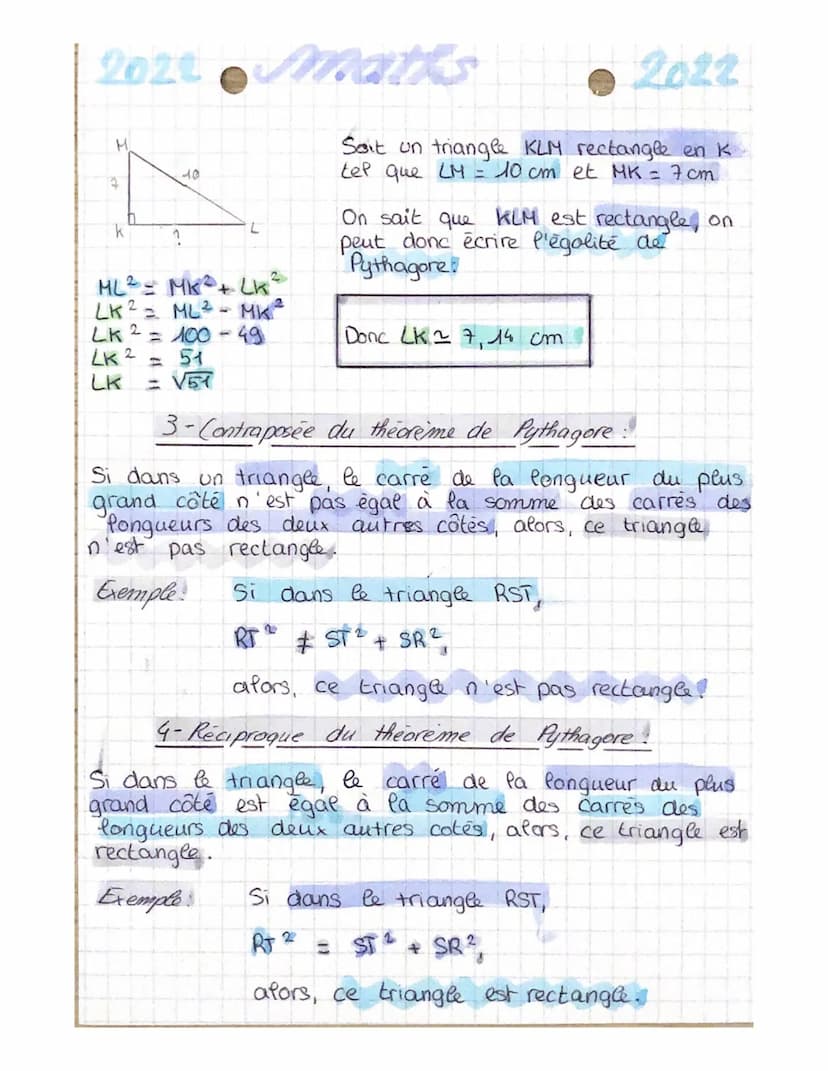 2022 maths 2022
M
7
10
K
?
L
Soit un triangle KLM rectangle en K
tel que LM = 10 cm et MK = 7 cm
On sait que KLM est rectangle, on
peut donc écrire l'égalité de
Pythagore:
ML² = MK² + LK²
LK² = ML² - MK²
LK² = 100 - 49
LK² = 51
LK = √51
Donc LK ≃ 7,14 cm
3-Contraposée du théorème de Pythagore :
Si dans un triangle, le carré de la longueur du plus
grand côté n'est pas égal à la somme des carrés des
longueurs des deux autres côtés, alors, ce triangle
n'est pas rectangle.
Exemple: Si dans le triangle RST,
RT² ≠ ST² + SR²,
alors, ce triangle n'est pas rectangle!
4-Réciproque du théorème de Pythagore :
Si dans le triangle, le carré de la longueur du plus
grand côté est égal à la somme des carrés des
longueurs des deux autres cotés, alors, ce triangle est
rectangle.
Exemple: Si dans le triangle RST,
RT² = ST² + SR²,
alors, ce triangle est rectangle.